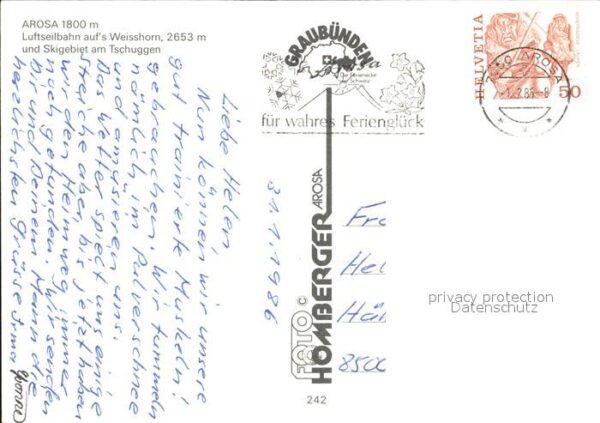 AROSA 1800 m
Luftseilbahn auf's Weisshorn, 2653 m
und Skigebiet am Tschuggen
Liebe Helen,
Nun können wir unsere
gut trainierte Muskeln!
gebrauchen. Wir tummeln
nämlich im Pulverschnee
und amüsieren uns.
Das Wetter spielt uns einige
Streiche aber, bis jetzt haben
wir den Heimweg immer
noch gefunden. Wir senden
Dir und Deinem Mann die
herzlichsten Grüsse Irma
Yvonne
31.1.1986
GRAUBÜNDEN
Die Ferienecke
der Schweiz
für wahres Ferienglück
AROSA
HELVETIA
50
FOTO ©
HOMBERGER AROSA
242
Fr
Hel
Hä
8500
privacy protection
Datenschutz